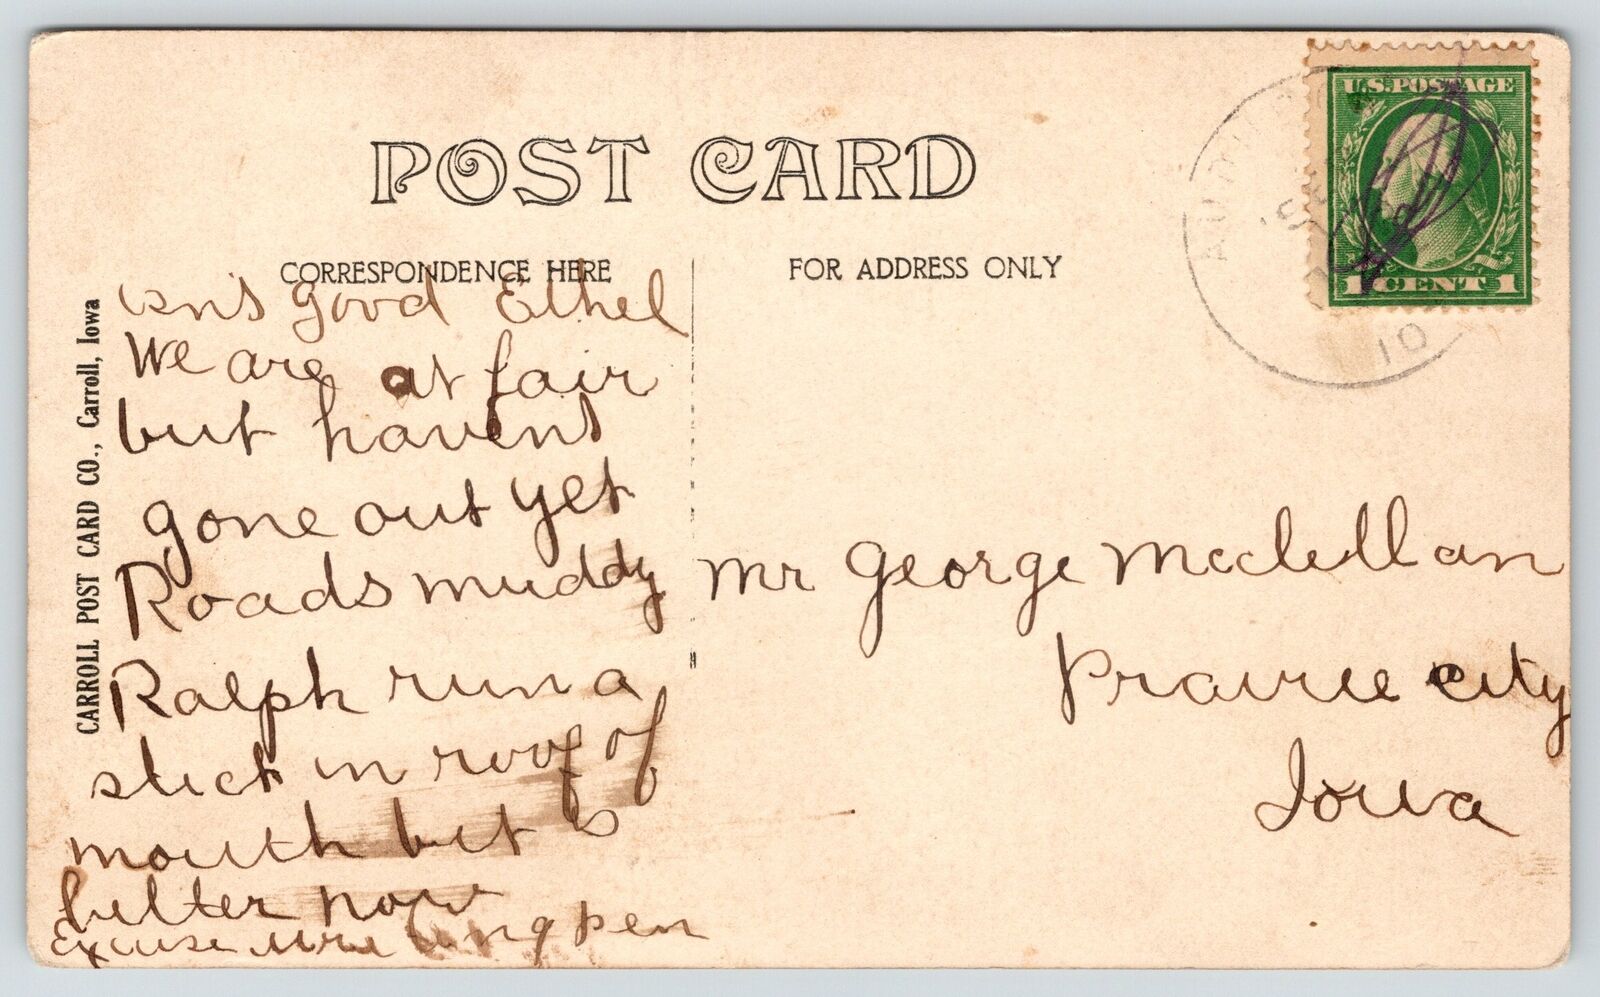 POST CARD
CORRESPONDENCE HERE
FOR ADDRESS ONLY
CARROLL POST CARD CO., Carroll, Iowa
U.S. POSTAGE
1 CENT 1
10
We are at fair
but havent
gone out yet
Roads muddy
Ralph run a
stick in roof of
mouth but is
better now
Excuse writing pen
isnt good Ethel
Mr George McClellan
Prairie city
Iowa